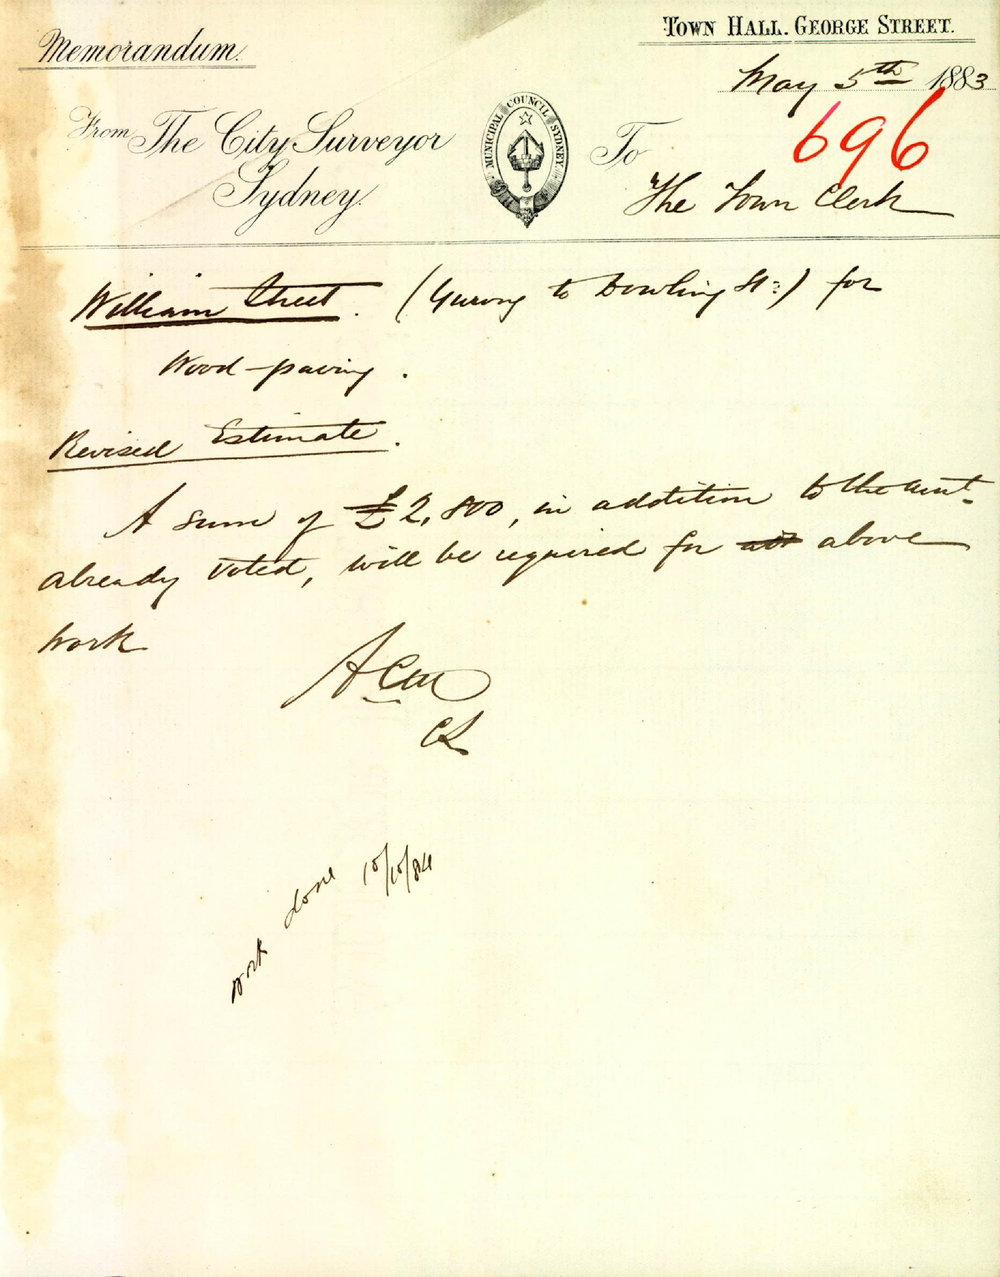 Memorandum.
TOWN HALL. GEORGE STREET.
May 5th 1883
696
From The City Surveyor
Sydney.
MUNICIPAL COUNCIL SYDNEY
To
The Town Clerk
William Street. (Yurong to Dowling St:) for
Wood-paving.
Revised Estimate.
A sum of £2,800, in addition to the amt.
already voted, will be required for above
work
CS
work done 10/10/84